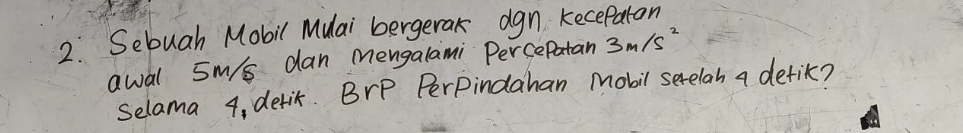 2. Sebuah Mobil Mulai bergerak dgn kecepatan
awal 5m/s dan mengalami Percepatan 3m/s²
Selama 4, detik. BrP Perpindahan Mobil setelah 4 detik?